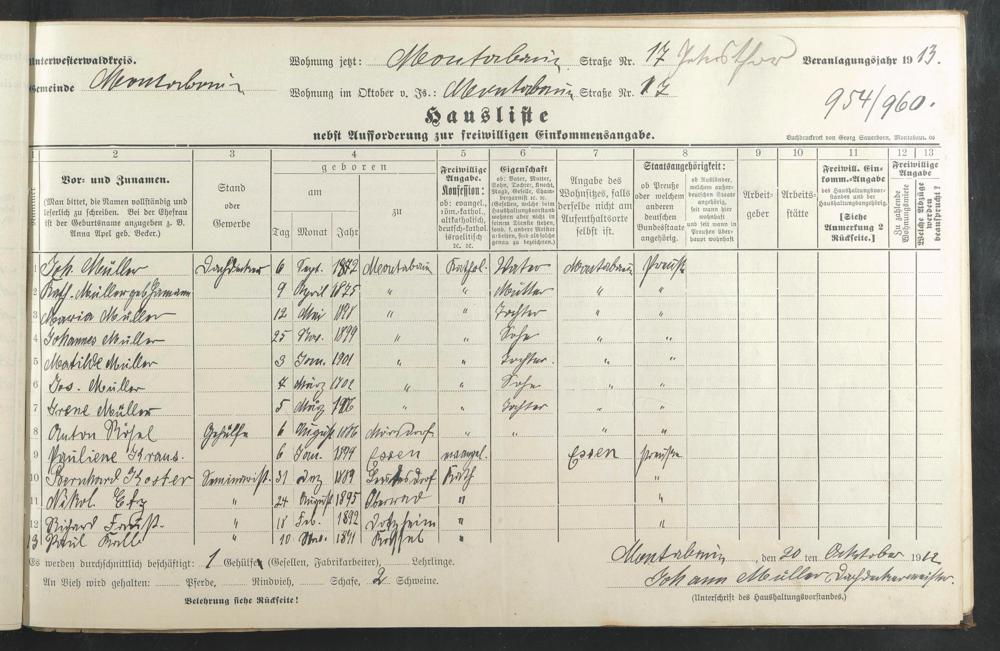 Unterwesterwaldkreis.
Wohnung jetzt: Montabaur Straße Nr. 17 Veranlagungsjahr 1913.
Gemeinde Montabaur
Wohnung im Oktober v. Js.: Montabaur Straße Nr. 17
954/960.
Hausliste
nebst Aufforderung zur freiwilligen Einkommensangabe.
Buchdruckerei von Georg Sauerborn, Montabaur.
1 2 3 4 5 6 7 8 9 10 11 12 13
Nummer
Vor- und Zunamen.
(Man bittet, die Namen vollständig und
leserlich zu schreiben. Bei der Ehefrau
ist der Geburtsname anzugeben z. B.
Anna Apel geb. Becker.)
Stand
oder
Gewerbe
geboren
am
zu
Tag Monat Jahr
Freiwillige
Angabe.
Konfession:
ob: evangel.,
röm.-kathol.,
altkatholisch,
deutsch-kathol.
israelitisch
ꝛc. ꝛc.
Eigenschaft
ob: Vater, Mutter,
Sohn, Tochter, Knecht,
Magd, Geselle, Cham-
bergarnist ꝛc. ꝛc.
Angabe des
Wohnsitzes, falls
derselbe nicht am
Aufenthaltsorte
selbst ist.
Staatsangehörigkeit:
ob Preuße
oder welchem
anderen
deutschen
Bundesstaate
angehörig.
ob Ausländer,
welchem außer-
deutschen Staate
angehörig,
seit wann hier
wohnhaft
und seit wann in
Preußen über-
haupt wohnhaft
Arbeit-
geber
Arbeits-
stätte
Freiwill. Ein-
komm.-Angabe
des Haushaltungsvor-
standes und der
Haushaltungsangehörig.
[Siehe
Anmerkung 2
Rückseite.]
Freiwillige
Angabe
Zu zahlende
Wohnungsmiete
Welche Abzüge
werden
beansprucht?
1 Joh. Müller Dachdecker 6 Sept. 1872 Montabaur Kathol. Vater Montabaur Preuße
2 Kath. Müller geb. 9 April 1875 " " Mutter " "
3 Maria Müller 12 Mai 1898 " " Tochter " "
4 Johannes Müller 25 Nov. 1899 " " Sohn " "
5 Matilde Müller 3 Jan. 1901 " " Tochter. " "
6 Jos. Müller 4 März 1902 " " Sohn " "
7 Irene Müller 5 März 1906 " " Tochter " "
8 Anton Gehülfe 6 August 1886 " " " "
9 Pauliene Kraus. 6 Jan. 1894 Essen evangel. Essen Preuße
10 Bernhard Koster Seminarist. 31 Dez 1889 Kath "
11 Nikol. Etz " 24 August 1895 Oberrad " "
12 Richard Faust. " 18 Feb. 1892 Dotzheim " "
13 Paul " 10 Nov.
Es werden durchschnittlich beschäftigt: 1 Gehülfe (Gesellen, Fabrikarbeiter), Lehrlinge.
An Vieh wird gehalten: Pferde, Rindvieh, Schafe, 2 Schweine.
Belehrung siehe Rückseite!
Montabaur, den 20 ten Oktober 1912
Johann Müller Dachdeckermeister.
(Unterschrift des Haushaltungsvorstandes.)